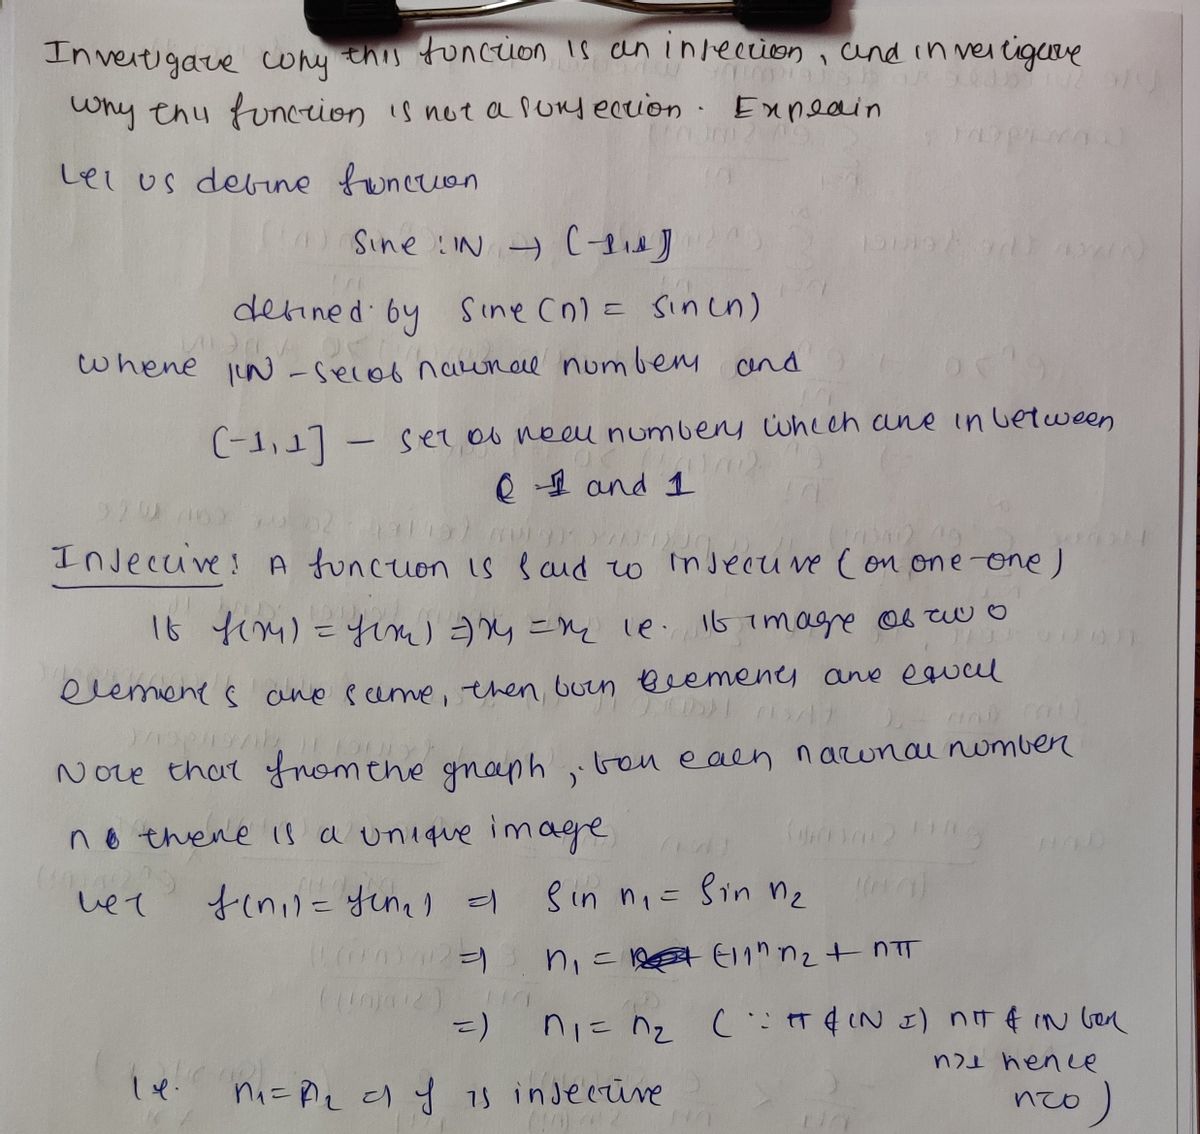 Investigate why this function is an injection, and investigate
why this function is not a surjection. Explain
Let us define function
Sine : ℕ → [-1,1]
defined by Sine (n) = sin(n)
where ℕ - set of natural numbers and
[-1,1] - set of real numbers which are in between
-1 and 1
Injective: A function is said to injective (or one-one)
If f(x₁) = f(x₂) ⇒ x₁ = x₂ ie. if image of two
elements are same, then both elements are equal
Note that from the graph, for each natural number
n there is a unique image
Let f(n₁) = f(n₂) ⇒ Sin n₁ = Sin n₂
⇒ n₁ = (-1)ⁿ n₂ + nπ
⇒ n₁ = n₂ (∵ π ∉ ℕ ⇒) nπ ∉ ℕ for
n≥1 hence
n=0)
i.e. n₁ = n₂ ⇒ f is injective